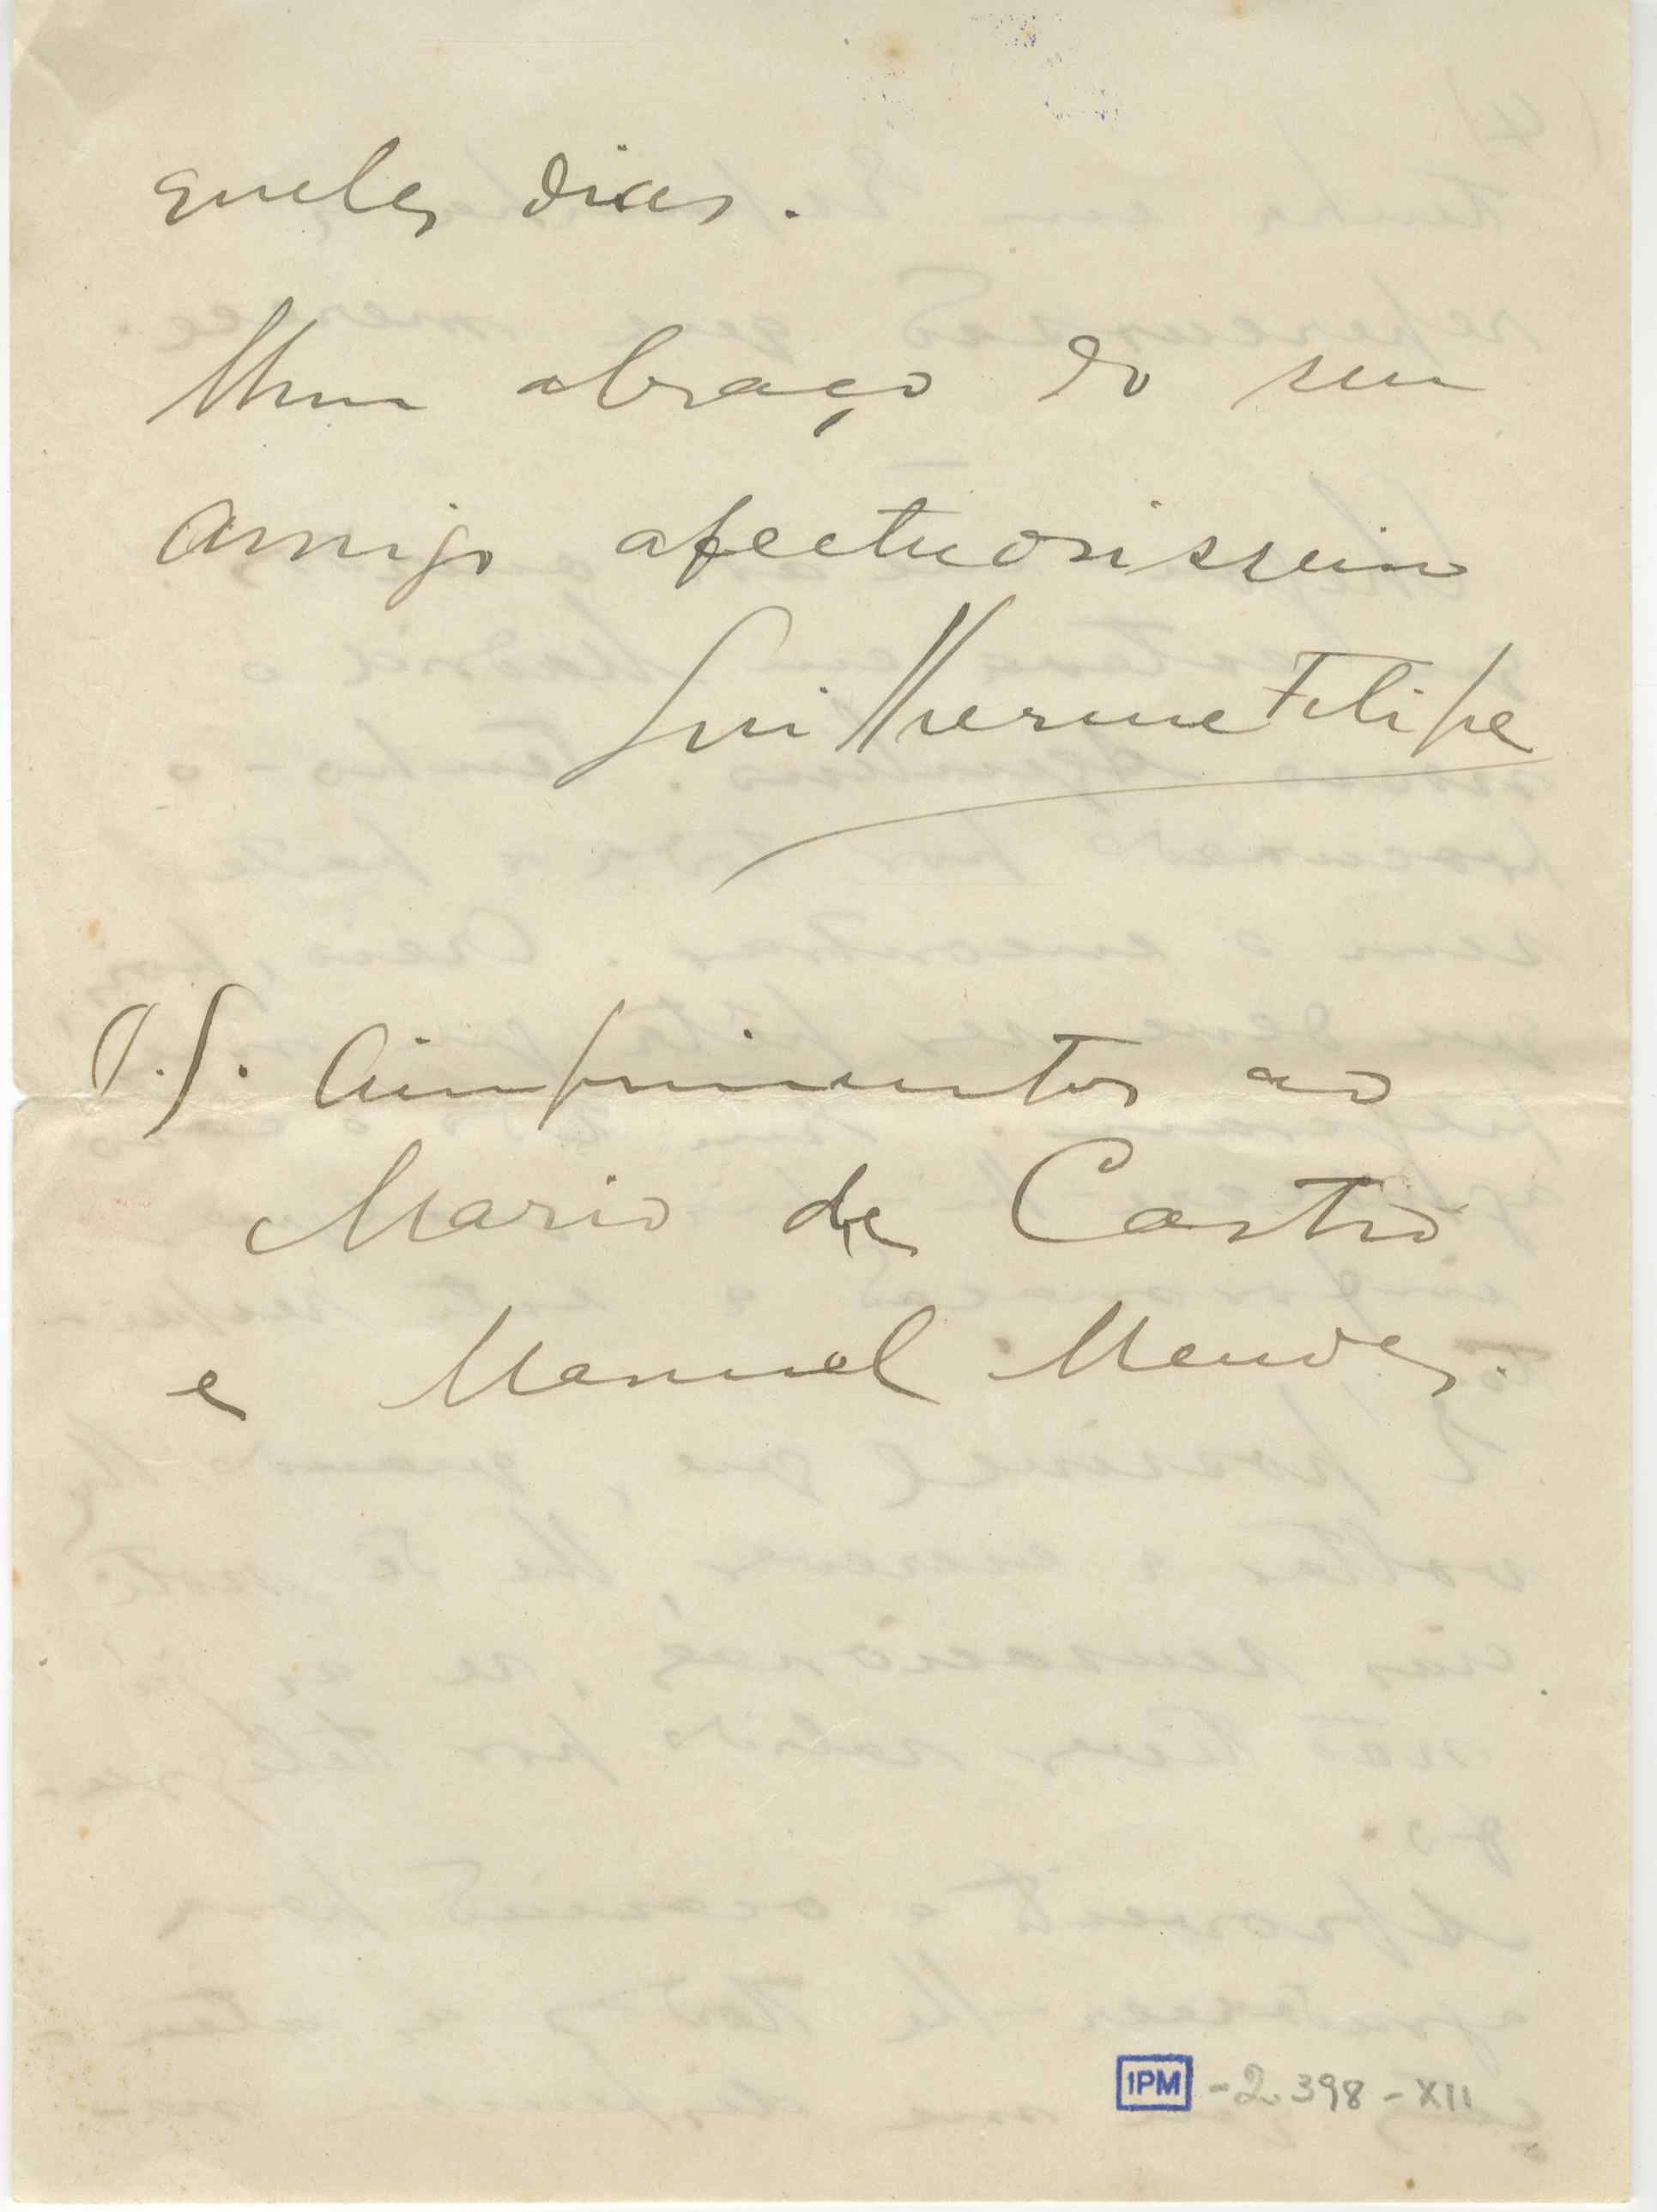 queles dias.
Um abraço do seu
amigo afectuosissimo
Guilherme Filipe
P.S. Cumprimentos ao
Mario de Castro
e Manuel Mendes.
IPM - 2.398 - XII